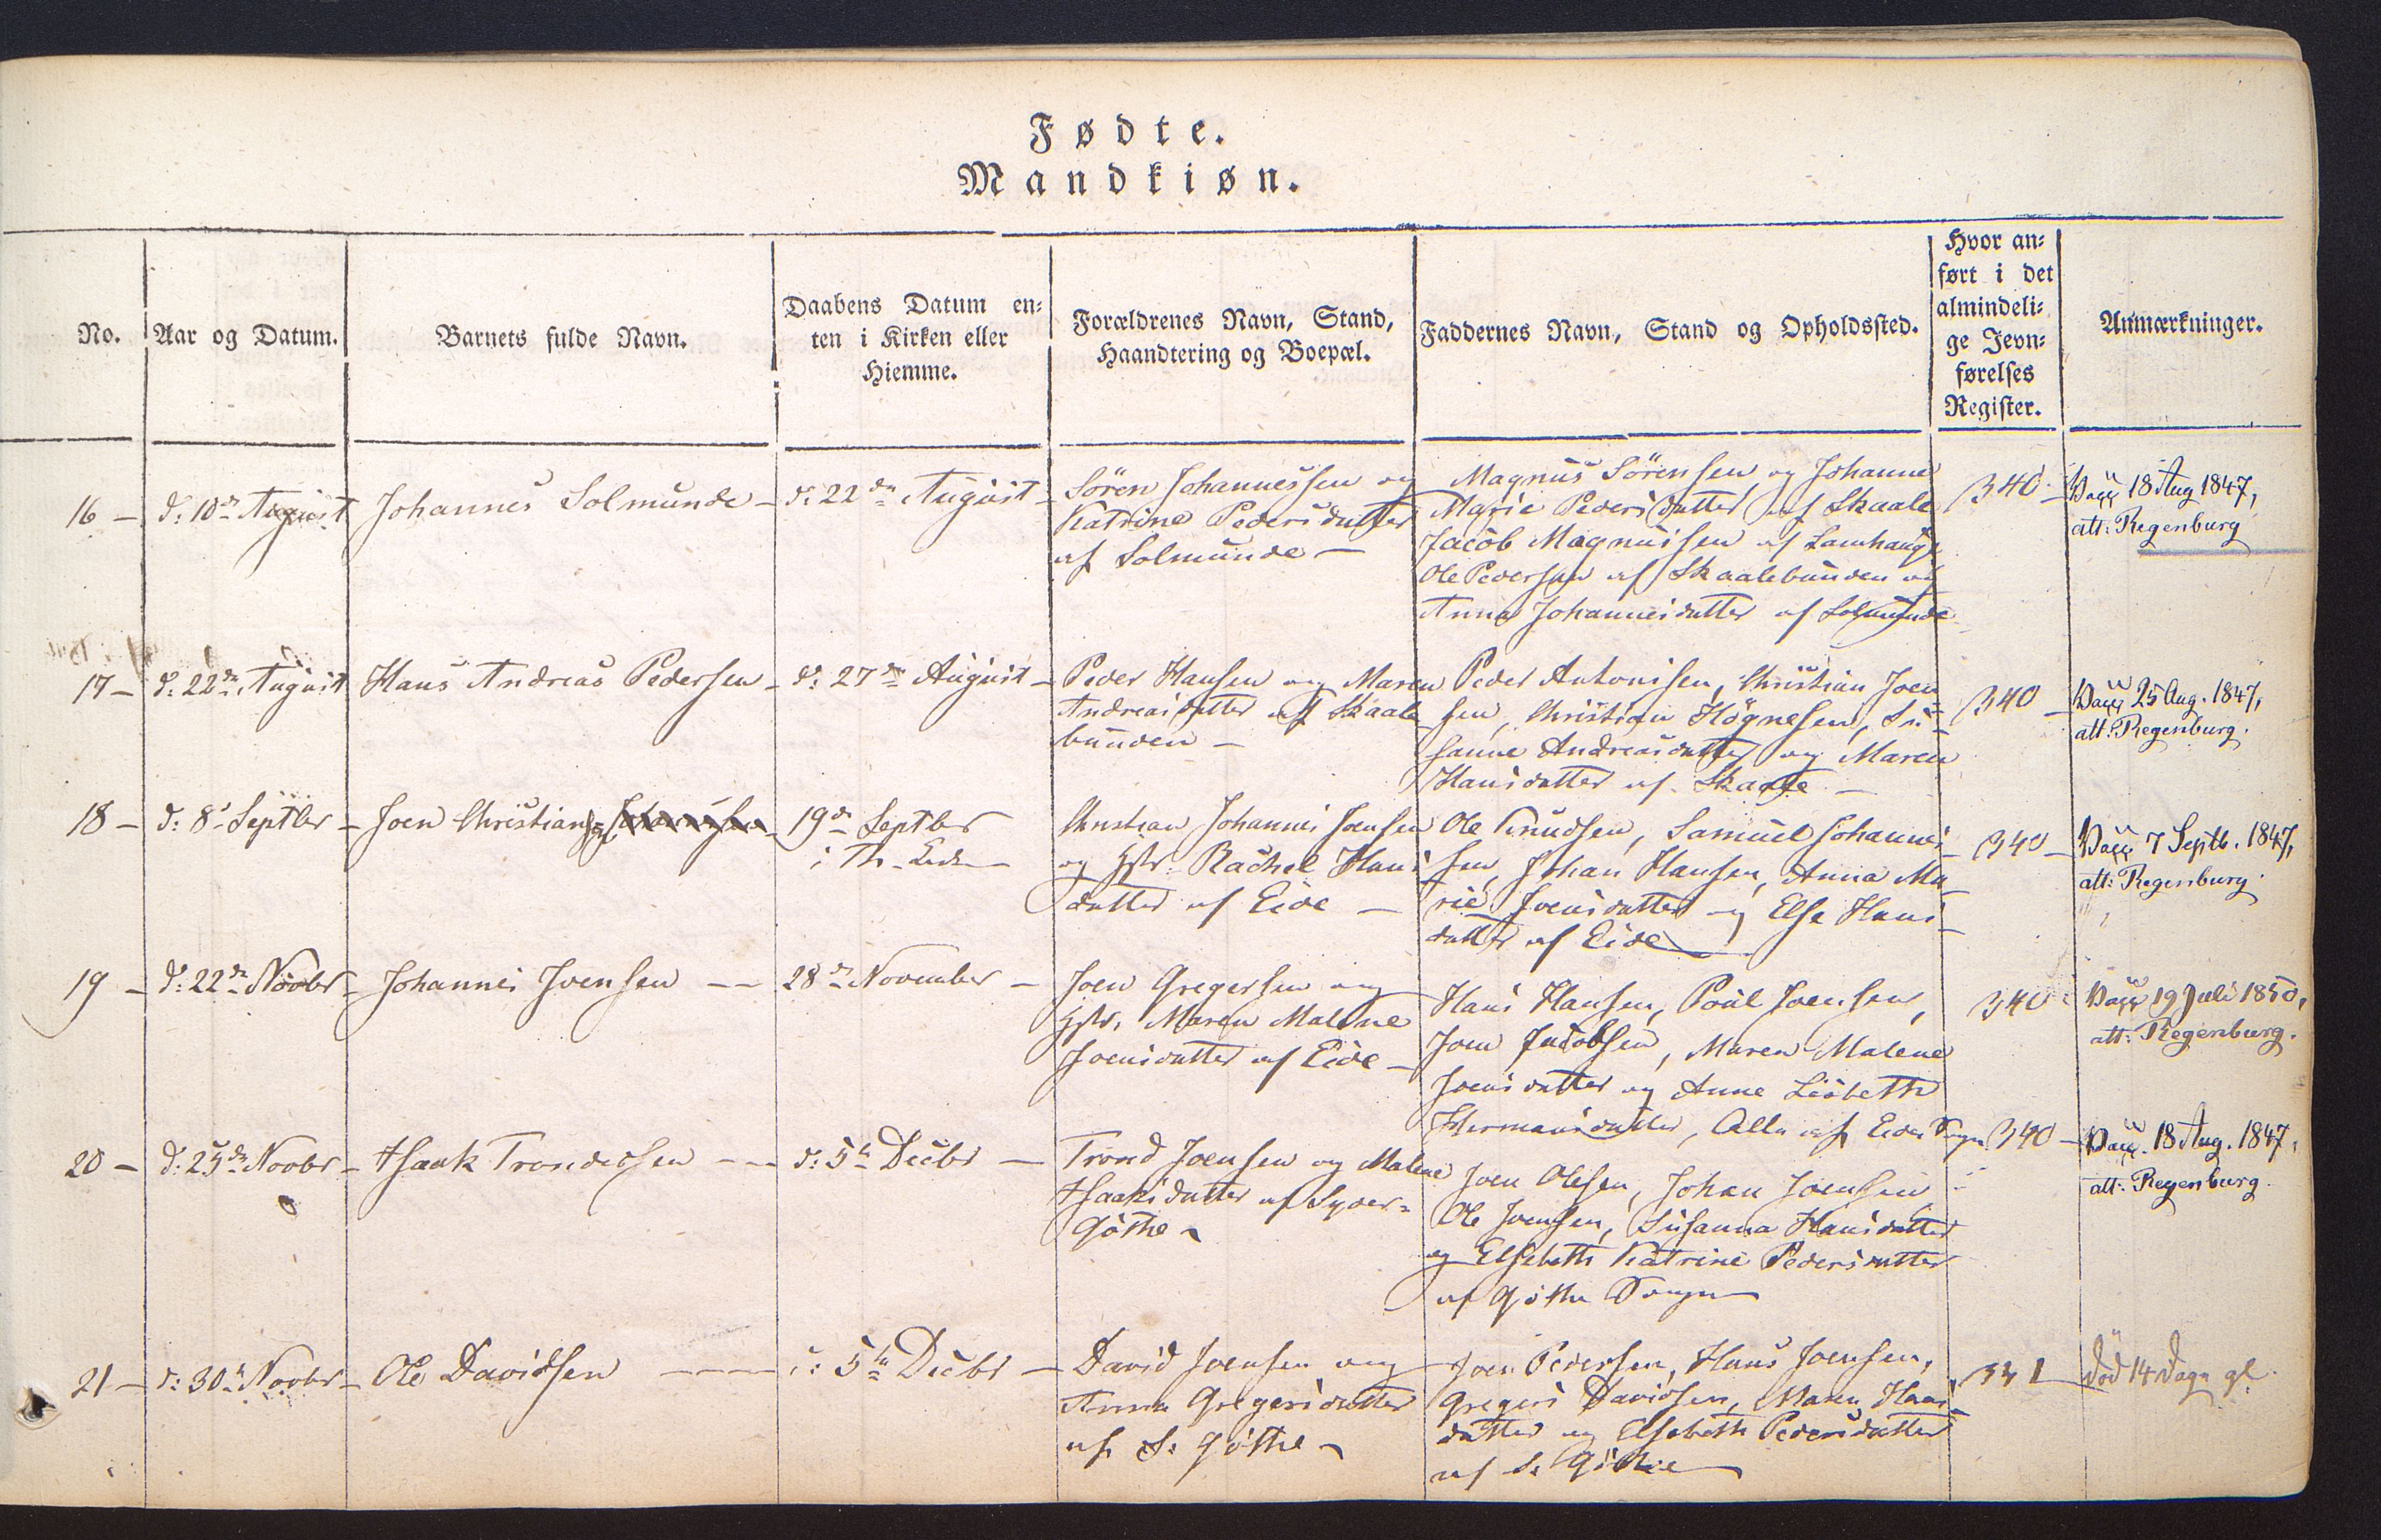 Fødte.
Mandkiøn.
No.
Aar og Datum.
Barnets fulde Navn.
Daabens Datum en=
ten i Kirken eller
Hiemme.
Forældrenes Navn, Stand,
Haandtering og Boepæl.
Faddernes Navn, Stand og Opholdssted.
Hvor an=
ført i det
almindeli=
ge Jevn=
førelses
Register.
Anmærkninger.
16 –
d: 10de August
Johannes Solmunde –
d: 22de August –
Sören Johannessen og
Katrine Pedersdatter
af Solmunde –
Magnus Sörensen og Johanne
Marie Pedersdatter af Skaale
Jacob Magnussen af Lamhauge
Ole Pedersen af Skaalebunden og
Anna Johannesdatter af Solmunde
340 –
Vacc 18 Aug 1847,
att: Regenburg
17 –
d: 22de August
Hans Andreas Pedersen –
d: 27de August –
Peder Hansen og Maren
Andreasdatter af Skaale
bunden –
Peder Antonisen, Christian Joen
sen, Christian Högnesen, Su=
sanne Andreasdatter og Maren
Hansdatter af Skaale –
340 –
Vacc 25 Aug. 1847,
att: Regenburg.
18 –
d: 8de Septbr –
Joen Christian
19de Septbr
Christian Johannes Joensen
og Hstr: Rachel Hans
datter af Eide –
Ole Knudsen, Samuel Johannes
sen, Johan Hansen, Anna Ma
rie Joensdatter og Else Hans
datter af Eide
340 –
Vacc 7 Septb. 1847,
att: Regenburg
19 –
d: 22de Novbr –
Johannes Joensen –
28de November –
Joen Gregersen og
Hstr. Maren Malene
Joensdatter af Eide –
Hans Hansen, Poul Joensen,
Joen Jacobsen, Maren Malene
Joensdatter og Anne Lisbeth
Hermansdatter, Alle af Eides Sogn
340
Vacc 19 Juli 1850,
att: Regenburg.
20 –
d: 25de Novbr –
Isaak Trondessen –
d: 5te Decbr –
Trond Joensen og Malene
Isaaksdatter af Syder=
göthe
Joen Olesen, Johan Joensen
Ole Joensen, Susanna Hansdatter
og Elsebeth Katrine Pedersdatter
af Göthe Sogn
340 –
Vacc. 18 Aug. 1847,
att: Regenburg.
21 –
d: 30te Novbr –
Ole Davidsen –
d: 5te Decbr –
David Joensen og
Anna Gregersdatter
af S: Göthe
Joen Pedersen, Hans Joensen,
Gregers Davidsen, Maren Hans
datter og Elsebeth Pedersdatter
af S: Göthe
341
död 14 Dage gl.